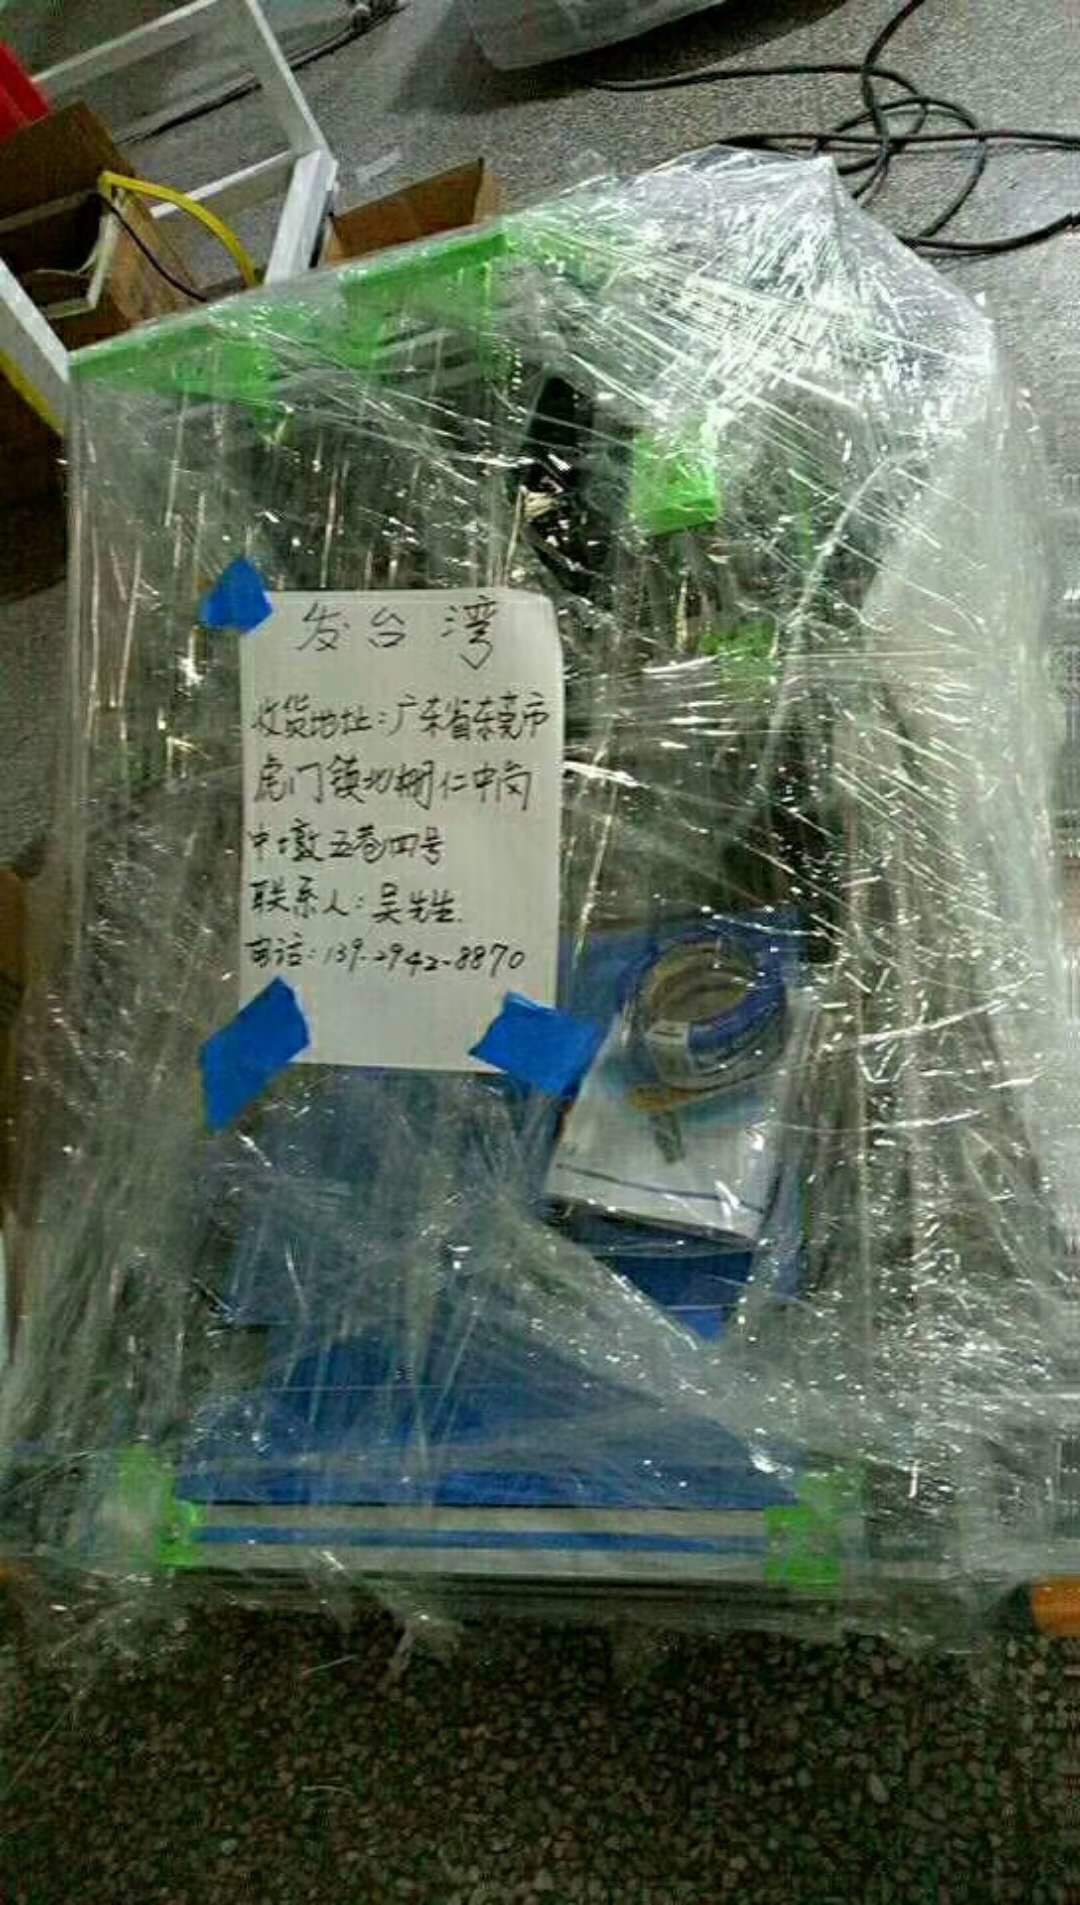 发台湾
收货地址:广东省东莞市
虎门镇北栅仁中岗
中墩五巷四号
联系人:吴先生.
电话:139-2942-8870